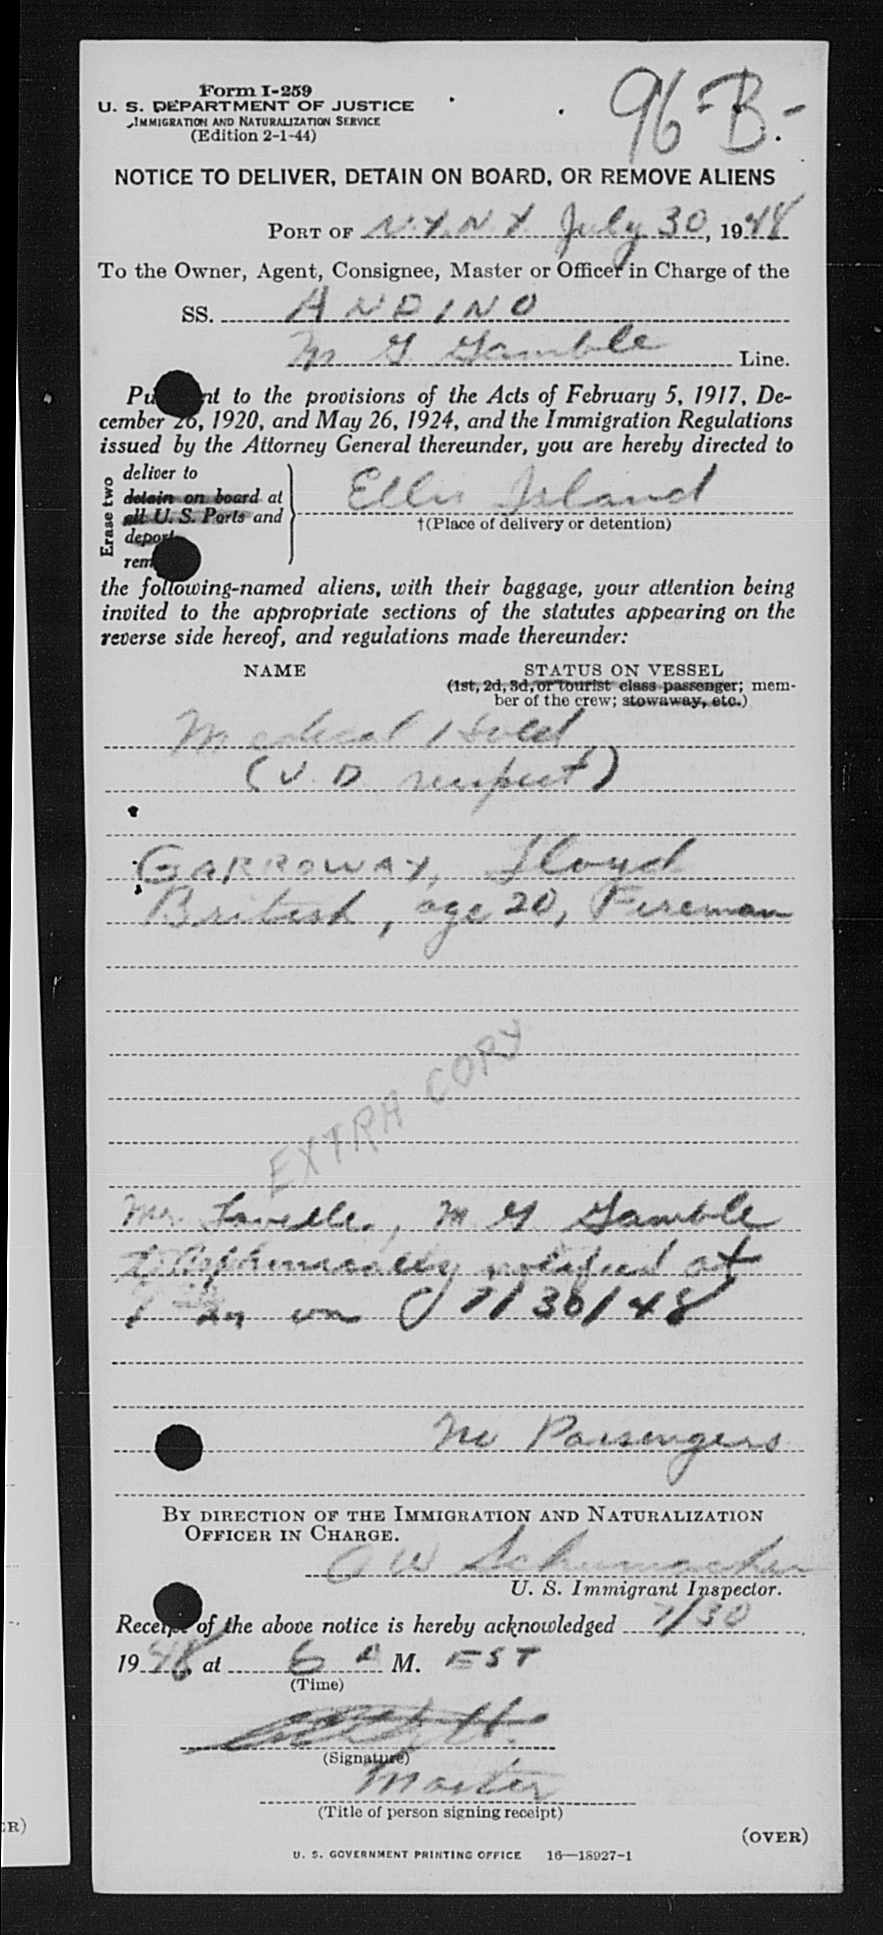 Form I-259
U. S. DEPARTMENT OF JUSTICE
IMMIGRATION AND NATURALIZATION SERVICE
(Edition 2-1-44)
96-B.-
NOTICE TO DELIVER, DETAIN ON BOARD, OR REMOVE ALIENS
PORT OF N.Y.N.Y July 30, 1948
To the Owner, Agent, Consignee, Master or Officer in Charge of the
SS. ANDINO
M G Gamble Line.
Pu nt to the provisions of the Acts of February 5, 1917, De-
cember 26, 1920, and May 26, 1924, and the Immigration Regulations
issued by the Attorney General thereunder, you are hereby directed to
Erase two
deliver to
detain on board at
all U. S. Ports and
deport
rem
Ellis Island
†(Place of delivery or detention)
the following-named aliens, with their baggage, your attention being
invited to the appropriate sections of the statutes appearing on the
reverse side hereof, and regulations made thereunder:
NAME STATUS ON VESSEL
(1st, 2d, 3d, or tourist class passenger; mem-
ber of the crew; stowaway, etc.)
Medical Hold
(V.D. suspect)
GARROWAY, Lloyd
British, age 20, Fireman
EXTRA COPY
Mr. M G Gamble
telephonically notified at
on 7/30/48
No Passengers
BY DIRECTION OF THE IMMIGRATION AND NATURALIZATION
OFFICER IN CHARGE.
O W Schumacher
U. S. Immigrant Inspector.
Receipt of the above notice is hereby acknowledged 7/30
1948, at 6 P M. EST
(Time)
(Signature)
Master
(Title of person signing receipt)
(OVER)
U. S. GOVERNMENT PRINTING OFFICE 16—18927-1
ER)